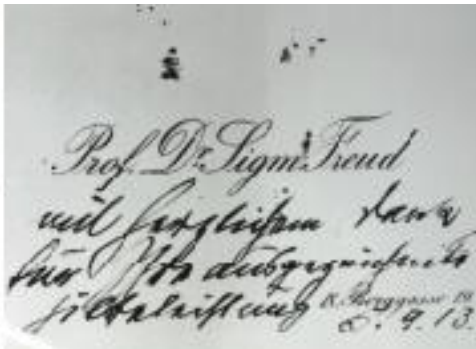 Prof. Dr. Sigm. Freud
mit herzlichem Dank
für Ihre ausgezeichnete
Hilfeleistung
IX. Berggasse 19
9.13